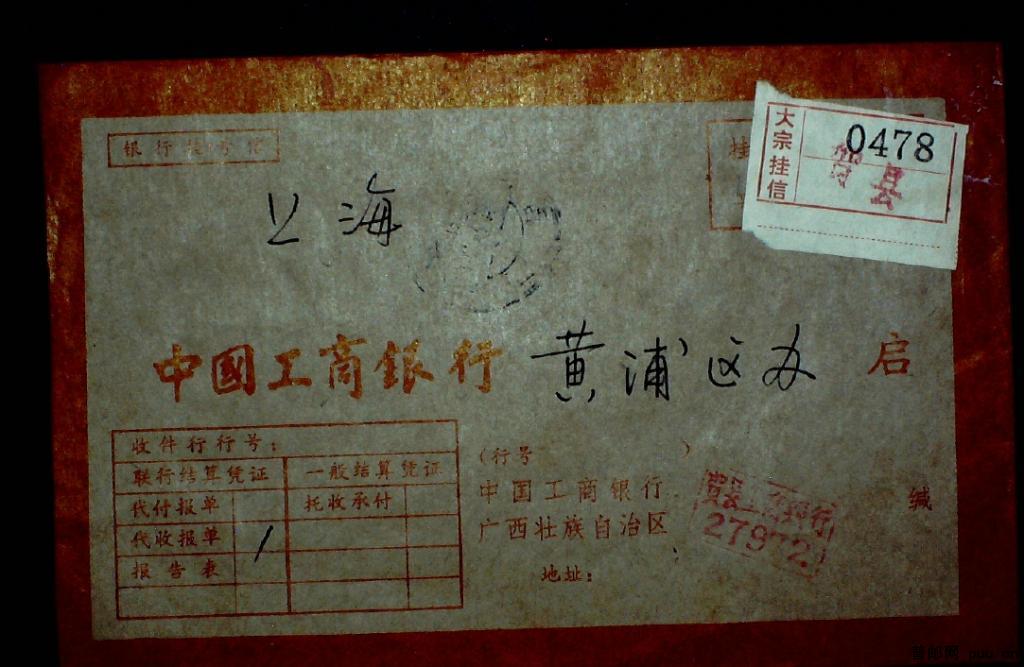 银行挂号信
大宗挂信
0478
贺县
上海
中國工商銀行 黄浦区办 启
收件行行号：
联行结算凭证 一般结算凭证
代付报单 托收承付
代收报单 /
报告表
（行号 ）
中国工商银行
广西壮族自治区 缄
地址：
27972